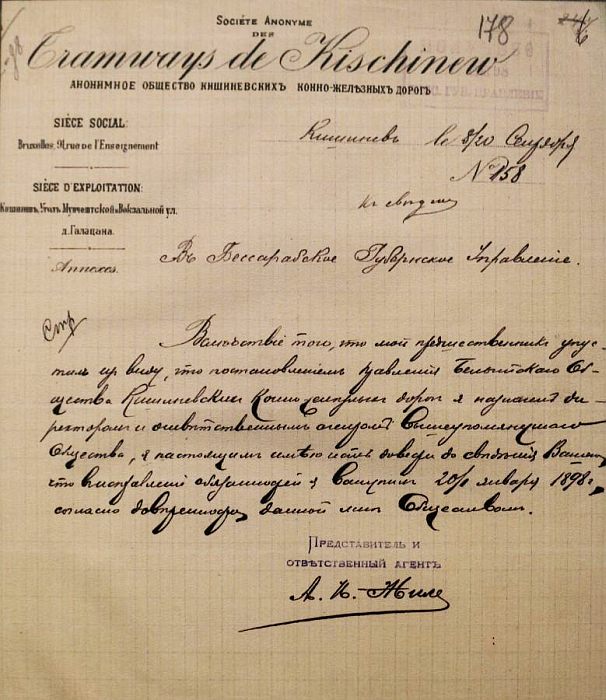 178
SOCIÉTÉ ANONYME
DES
Tramways de Kischinew
АНОНИМНОЕ ОБЩЕСТВО КИШИНЕВСКИХЪ КОННО-ЖЕЛѢЗНЫХЪ ДОРОГЪ
SIÈGE SOCIAL:
Bruxelles, 91, rue de l'Enseignement
SIÈGE D'EXPLOITATION:
Кишиневъ, Уголъ и Вокзальной ул.
д. Галацана.
Annexes.
Кишиневъ le 8/20 Сентября
№ 158
Въ Бессарабское Губернское Правление.
Вследствiе того, что мой предшественникъ упус-
тилъ из виду, что постановлениемъ Правления Бельгiйскаго Об-
щества Кишиневскихъ Конно железныхъ дорогъ я назначенъ ди-
ректоромъ и ответственнымъ агентомъ вышеупомянутаго
Общества, я настоящимъ имѣю честь довести до сведения
что в исправление обязанностей я вступилъ 20/1 января 1898 г.
согласно доверенности данной мне Обществомъ.
ПРЕДСТАВИТЕЛЬ И
ОТВѢТСТВЕННЫЙ АГЕНТЪ